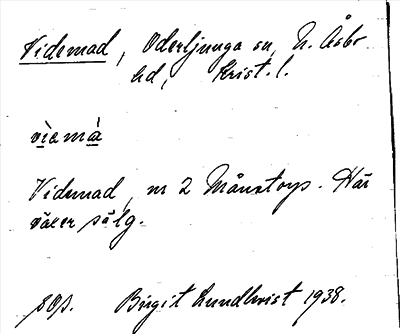 Videmad, Oderljunga sn, N. Åsbo
hd, Krist. l.
vìemà
Videmad, nr 2 Månstorp. Här
växer sälg.
Birgit Lundkvist 1938.